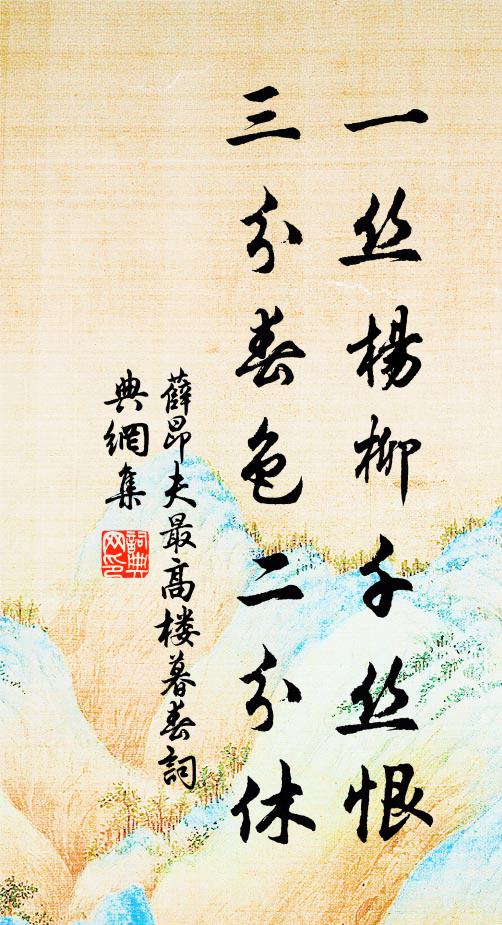 一丝楊柳千丝恨
三分春色二分休
薛昂夫最高楼暮春詞
典網集
詞典網印